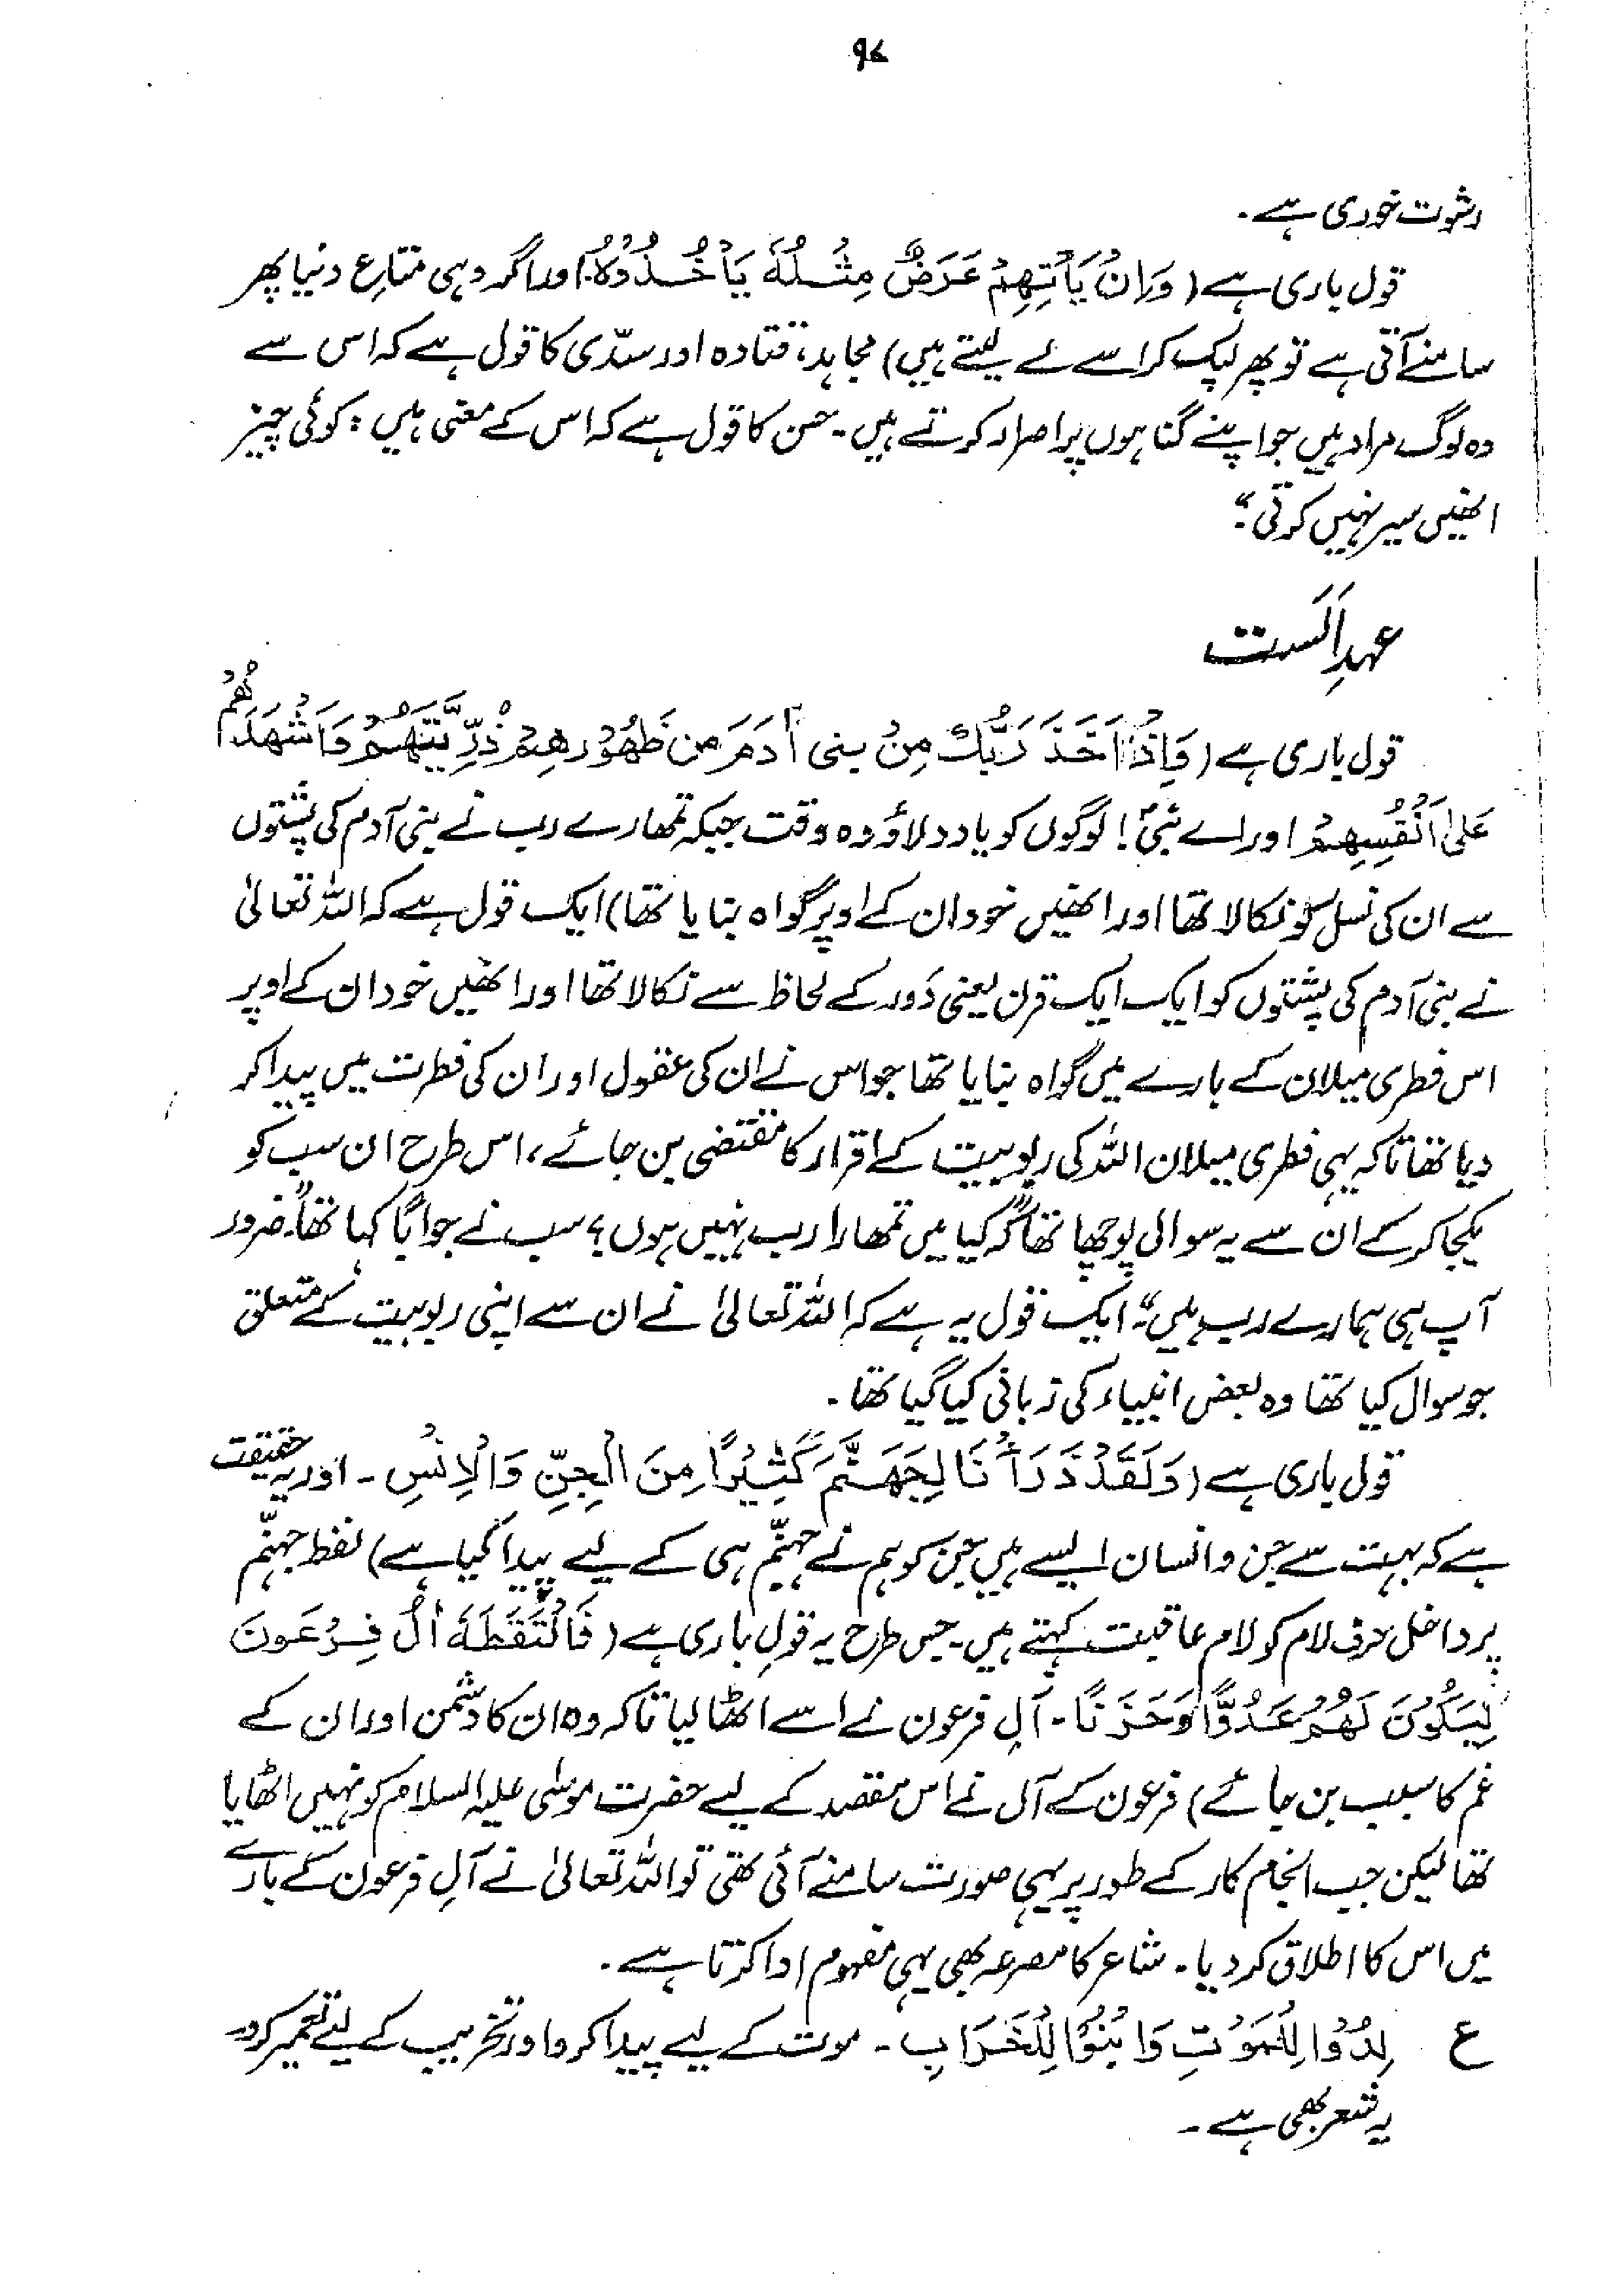 ۹۷
رشوت خوری ہے۔
قول باری ہے (وَاِنْ يَّأْتِهِمْ عَرَضٌ مِثْلُهٗ يَأْخُذُوْهُ۔ اور اگر وہی متاعِ دنیا پھر
سامنے آتی ہے تو پھر لپک کر اسے لے لیتے ہیں) مجاہد، قتادہ اور سدّی کا قول ہے کہ اس سے
وہ لوگ مراد ہیں جو اپنے گناہوں پر اصرار کرتے ہیں۔ حسن کا قول ہے کہ اس کے معنی ہیں: کوئی چیز
انھیں سیر نہیں کرتی؛"
عہدِ اَلَست
قول باری ہے (وَاِذْ اَخَذَ رَبُّكَ مِنْ بنی اٰدَمَ مِن ظُهُوْرِهِمْ ذُرِّيَّتَهُمْ وَاَشْهَدَهُمْ
عَلٰى اَنْفُسِهِمْ اور اے نبیؐ! لوگوں کو یاد دلاؤ وہ وقت جبکہ تمھارے رب نے بنی آدم کی پشتوں
سے ان کی نسل کو نکالا تھا اور انھیں خود ان کے اوپر گواہ بنایا تھا) ایک قول ہے کہ اللہ تعالیٰ
نے بنی آدم کی پشتوں کو ایک ایک قرن یعنی دَور کے لحاظ سے نکالا تھا اور انھیں خود ان کے اوپر
اس فطری میلان کے بارے میں گواہ بنایا تھا جو اس نے ان کی عقول اور ان کی فطرت میں پیدا کر
دیا تھا تاکہ یہی فطری میلان اللہ کی ربوبیت کے اقرار کا مقتضی بن جائے، اس طرح ان سب کو
یکجا کر کے ان سے یہ سوالی پوچھا تھا کہ "کیا میں تمھارا رب نہیں ہوں؟ سب نے جواباً کہا تھا "ضرور
آپ ہی ہمارے رب ہیں"۔ ایک قول یہ ہے کہ اللہ تعالیٰ نے ان سے اپنی ربوبیت کے متعلق
جو سوال کیا تھا وہ بعض انبیاء کی زبانی کیا گیا تھا۔
قول باری ہے (وَلَقَدْ ذَرَأْنَا لِجَهَنَّمَ كَثِيْرًا مِنَ الْجِنِّ وَالْاِنْسِ۔ اور یہ حقیقت
ہے کہ بہت سے جن و انسان ایسے ہیں جن کو ہم نے جہنّم ہی کے لیے پیدا کیا ہے) لفظ جہنّم
پر داخل حرف لام کو لام عاقبت کہتے ہیں۔ جس طرح یہ قولِ باری ہے (فَالْتَقَطَهٗ اٰلُ فِرْعَوْنَ
لِيَكُوْنَ لَهُمْ عَدُوًّا وَحَزَنًا۔ آلِ فرعون نے اسے اٹھا لیا تاکہ وہ ان کا دشمن اور ان کے
غم کا سبب بن جائے) فرعون کے آل نے اس مقصد کے لیے حضرت موسٰی علیہ السلام کو نہیں اٹھایا
تھا لیکن جب انجام کار کے طور پر یہی صورت سامنے آئی تھی تو اللہ تعالیٰ نے آلِ فرعون کے بارے
میں اس کا اطلاق کر دیا۔ شاعر کا مصرعہ بھی یہی مفہوم ادا کرتا ہے۔
ع لِدُوْا لِلْمَوْتِ وَابْنُوْا لِلْخَرَابِ۔ موت کے لیے پیدا کرو اور تخریب کے لیے تعمیر کرو۔
یہ شعر بھی ہے۔